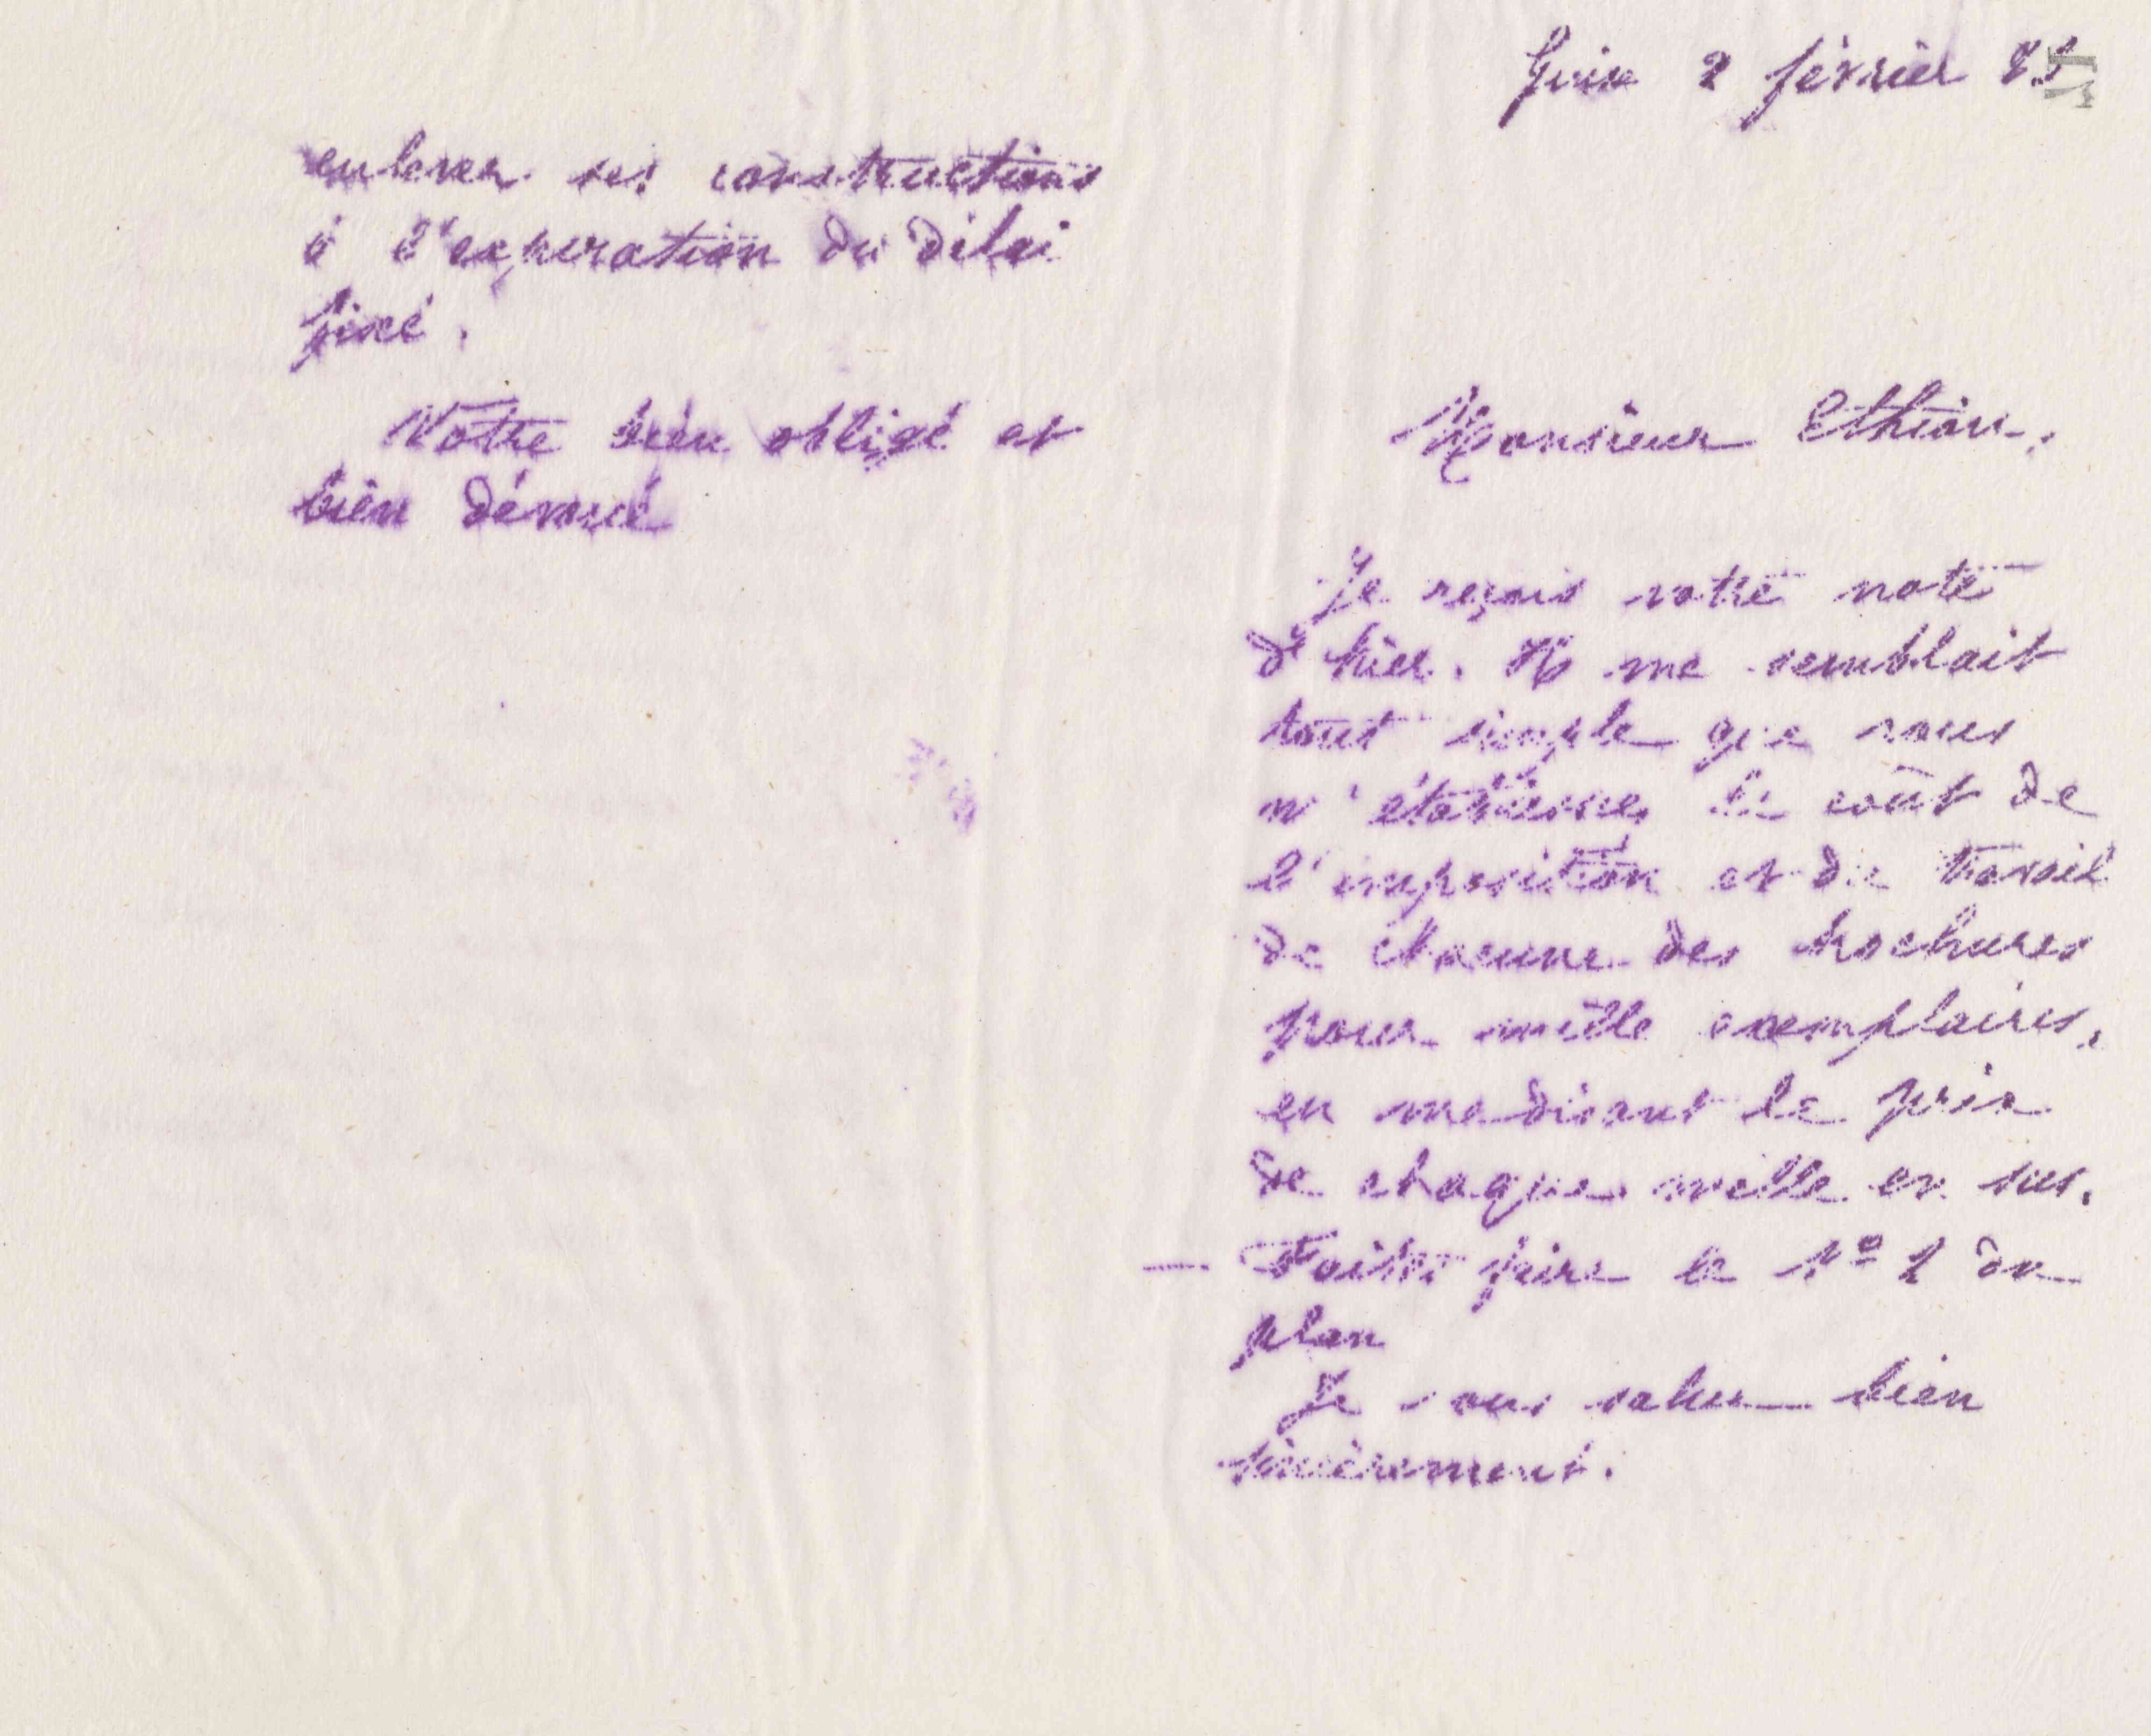 enlever ses constructions
à l'expiration du délai
fixé.
Votre bien obligé et
bien dévoué
Guise 2 février 85
Monsieur Ethiou,
Je reçois votre note
d'hier. Il me semblait
tout simple que vous
m'établissiez le coût de
l'imposition et du travail
de chacune des brochures
pour mille exemplaires,
en me disant le prix
de chaque mille en sus.
— Faites faire le No 2 du
plan
Je vous salue bien
sincèrement.